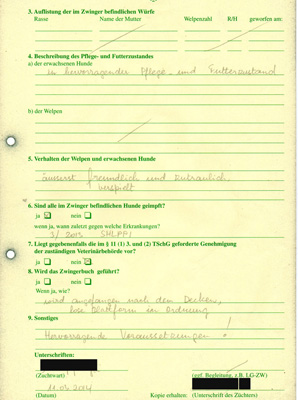 3. Auflistung der im Zwinger befindlichen Würfe
Rasse Name der Mutter Welpenzahl R/H geworfen am:
4. Beschreibung des Pflege- und Futterzustandes
a) der erwachsenen Hunde
in hervorragender Pflege und Futterzustand
b) der Welpen
5. Verhalten der Welpen und erwachsenen Hunde
äusserst freundlich und zutraulich
verspielt
6. Sind alle im Zwinger befindlichen Hunde geimpft?
ja nein
wenn ja, wann zuletzt gegen welche Erkrankungen?
3/2013 SHLPPI
7. Liegt gegebenenfalls die im § 11 (1) 3. und (2) TSchG geforderte Genehmigung
der zuständigen Veterinärbehörde vor?
ja nein
8. Wird das Zwingerbuch geführt?
ja nein
Wenn ja, wie?
wird angefangen nach dem Decken,
lose Blattform in Ordnung
9. Sonstiges
Hervorragende Voraussetzungen!
Unterschriften:
(Zuchtwart) (ggf. Begleitung, z.B. LG-ZW)
11.03.2014
(Datum) Kopie erhalten: (Unterschrift des Züchters)